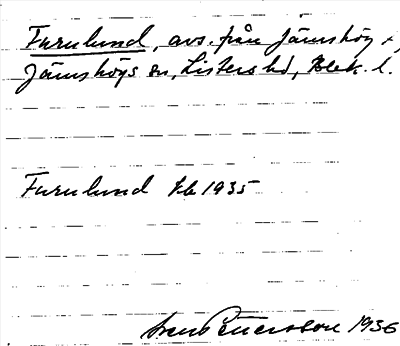 Furulund, avs. från Jämshög 4,
Jämshögs sn, Listers hd, Blek. l.
Furulund Jb 1935
Pettersson 1936